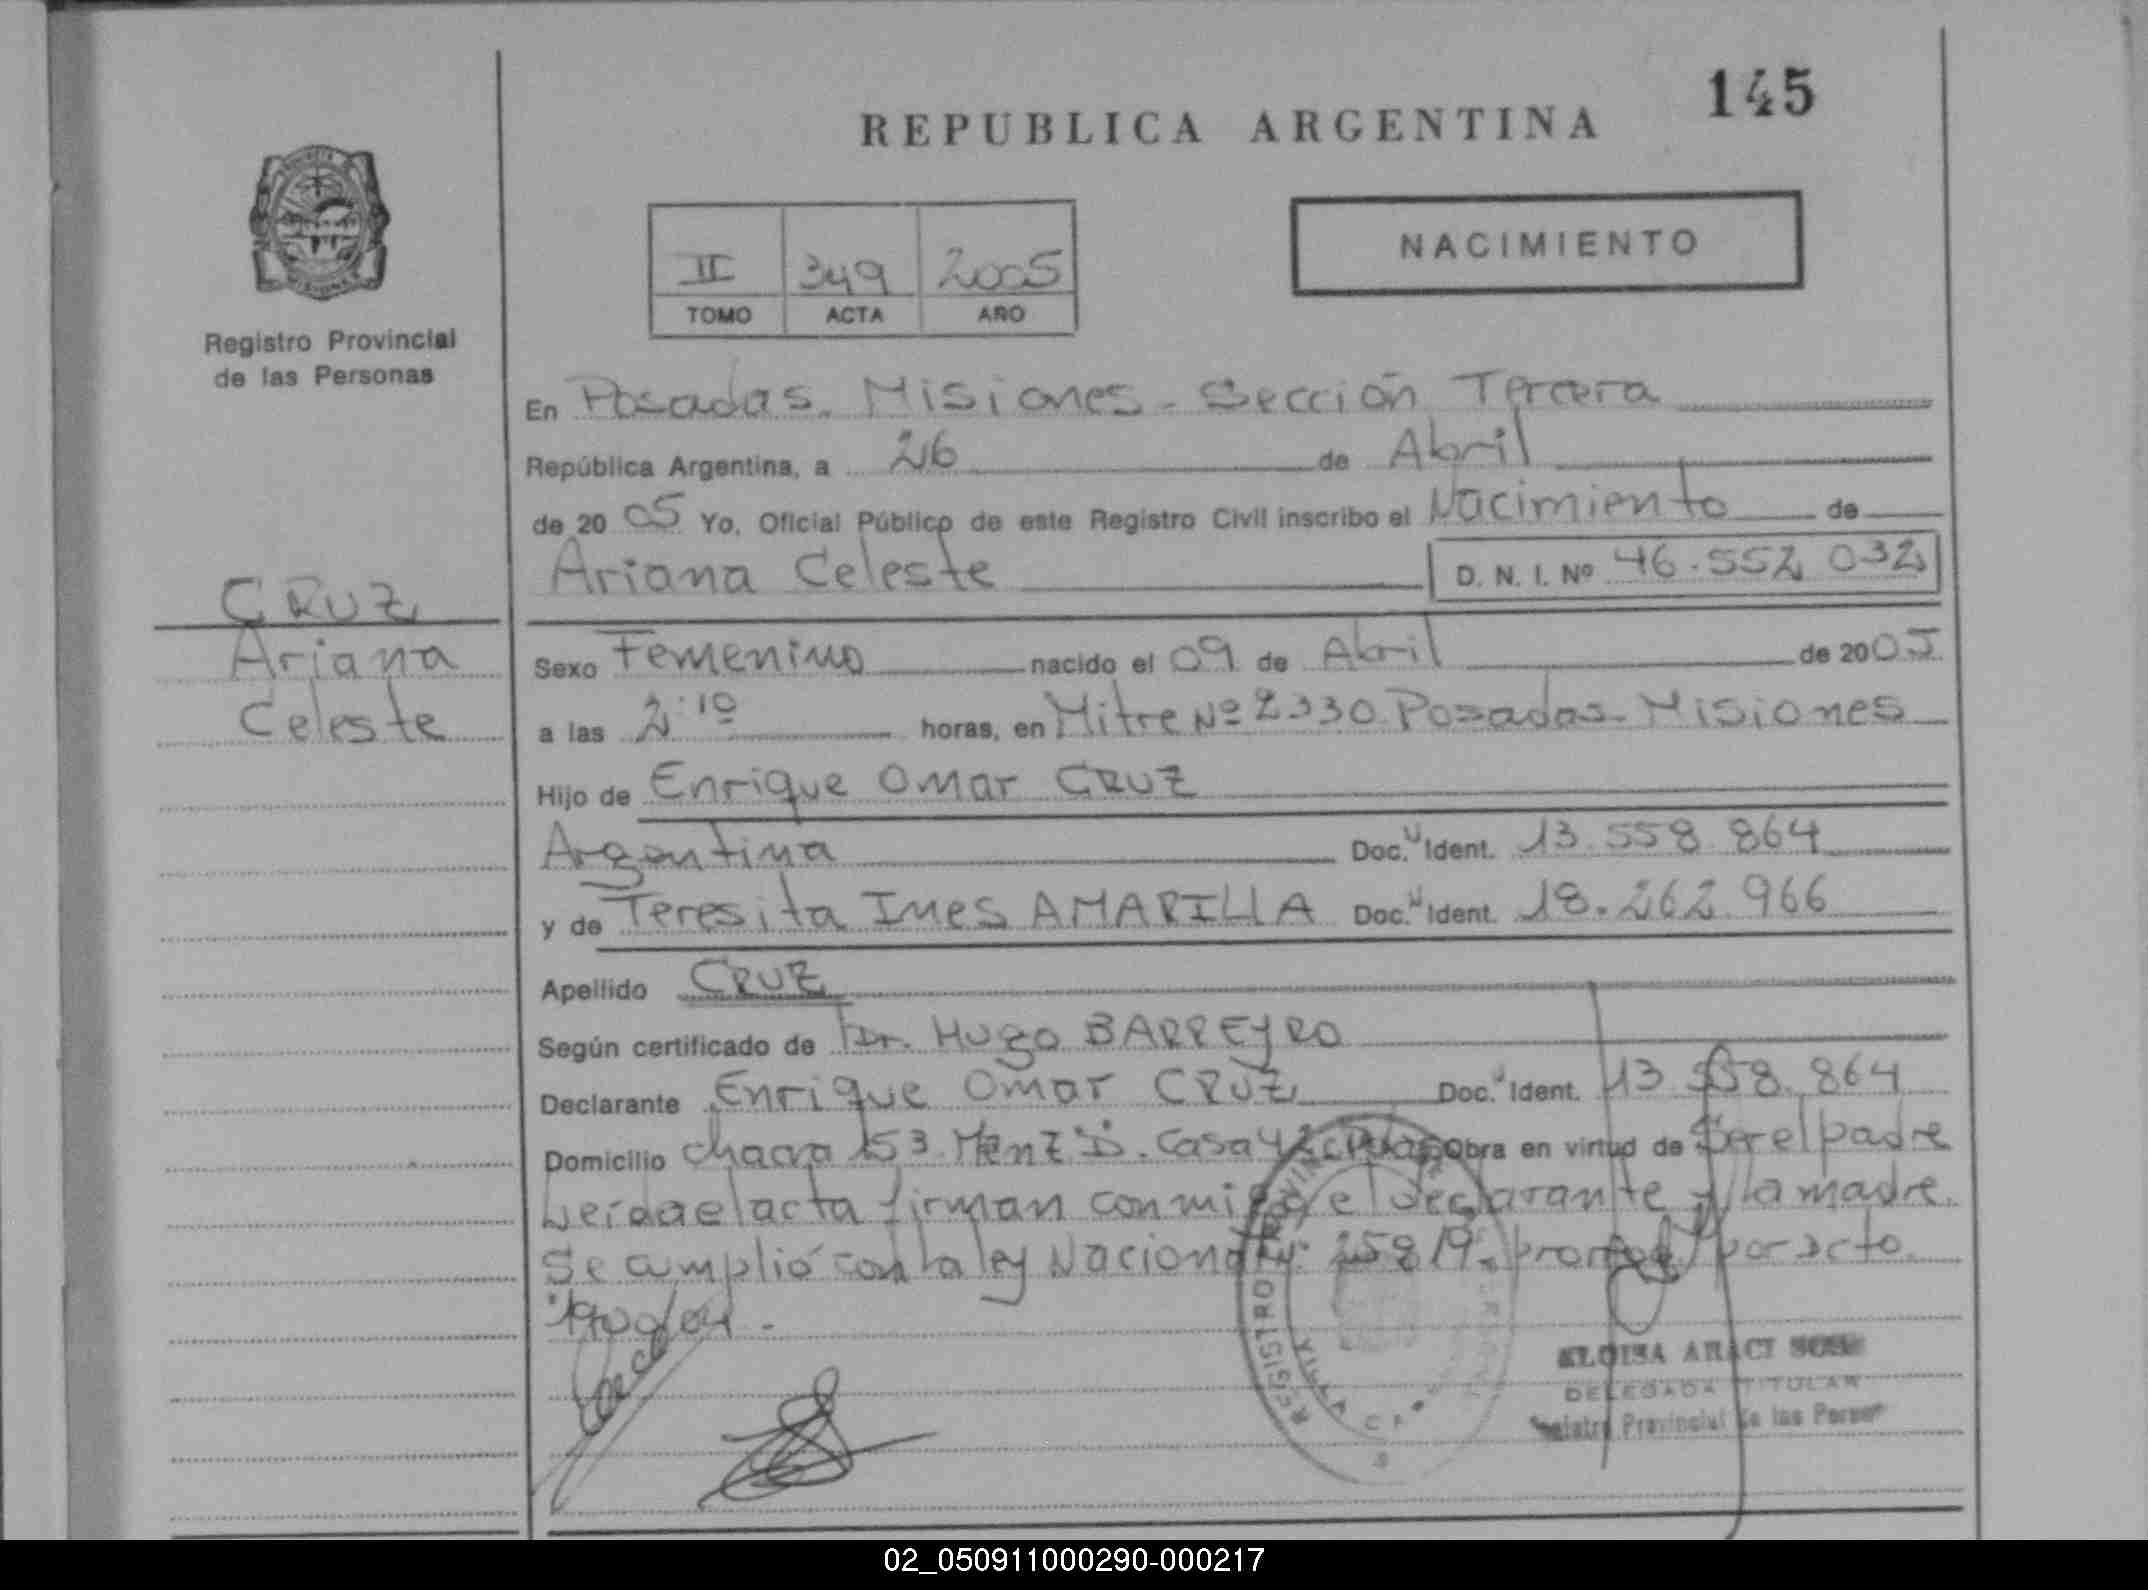 145
REPUBLICA ARGENTINA
NACIMIENTO
II 349 2005
TOMO ACTA AÑO
Registro Provincial
de las Personas
CRUZ
Ariana
Celeste
En Posadas. Misiones - Sección Tercera
República Argentina, a 26 de Abril
de 2005 Yo, Oficial Público de este Registro Civil inscribo el Nacimiento de
Ariana Celeste D. N. I. Nº 46.552 032
Sexo Femenino nacido el 09 de Abril de 2005
a las 2:10 horas, en Mitre Nº 2330 Posadas - Misiones
Hijo de Enrique Omar CRUZ
Argentina Doc. U Ident. 13.558.864
y de Teresita Ines AMARILLA Doc. U Ident. 18.262.966
Apellido CRUZ
Según certificado de Dr. Hugo BARREYRO
Declarante Enrique Omar CRUZ Doc. U Ident. 13 558.864
Domicilio chacra 153 Manz D. Casa Obra en virtud de Ser el padre
Leida el acta firman conmigo el declarante y la madre.
Se cumplió con la ley Nacional Nº 25819. por acto
REGISTRO
VILLA
ELOISA ARACI
DELEGADA TITULAR
Registro Provincial de las Person
02_050911000290-000217